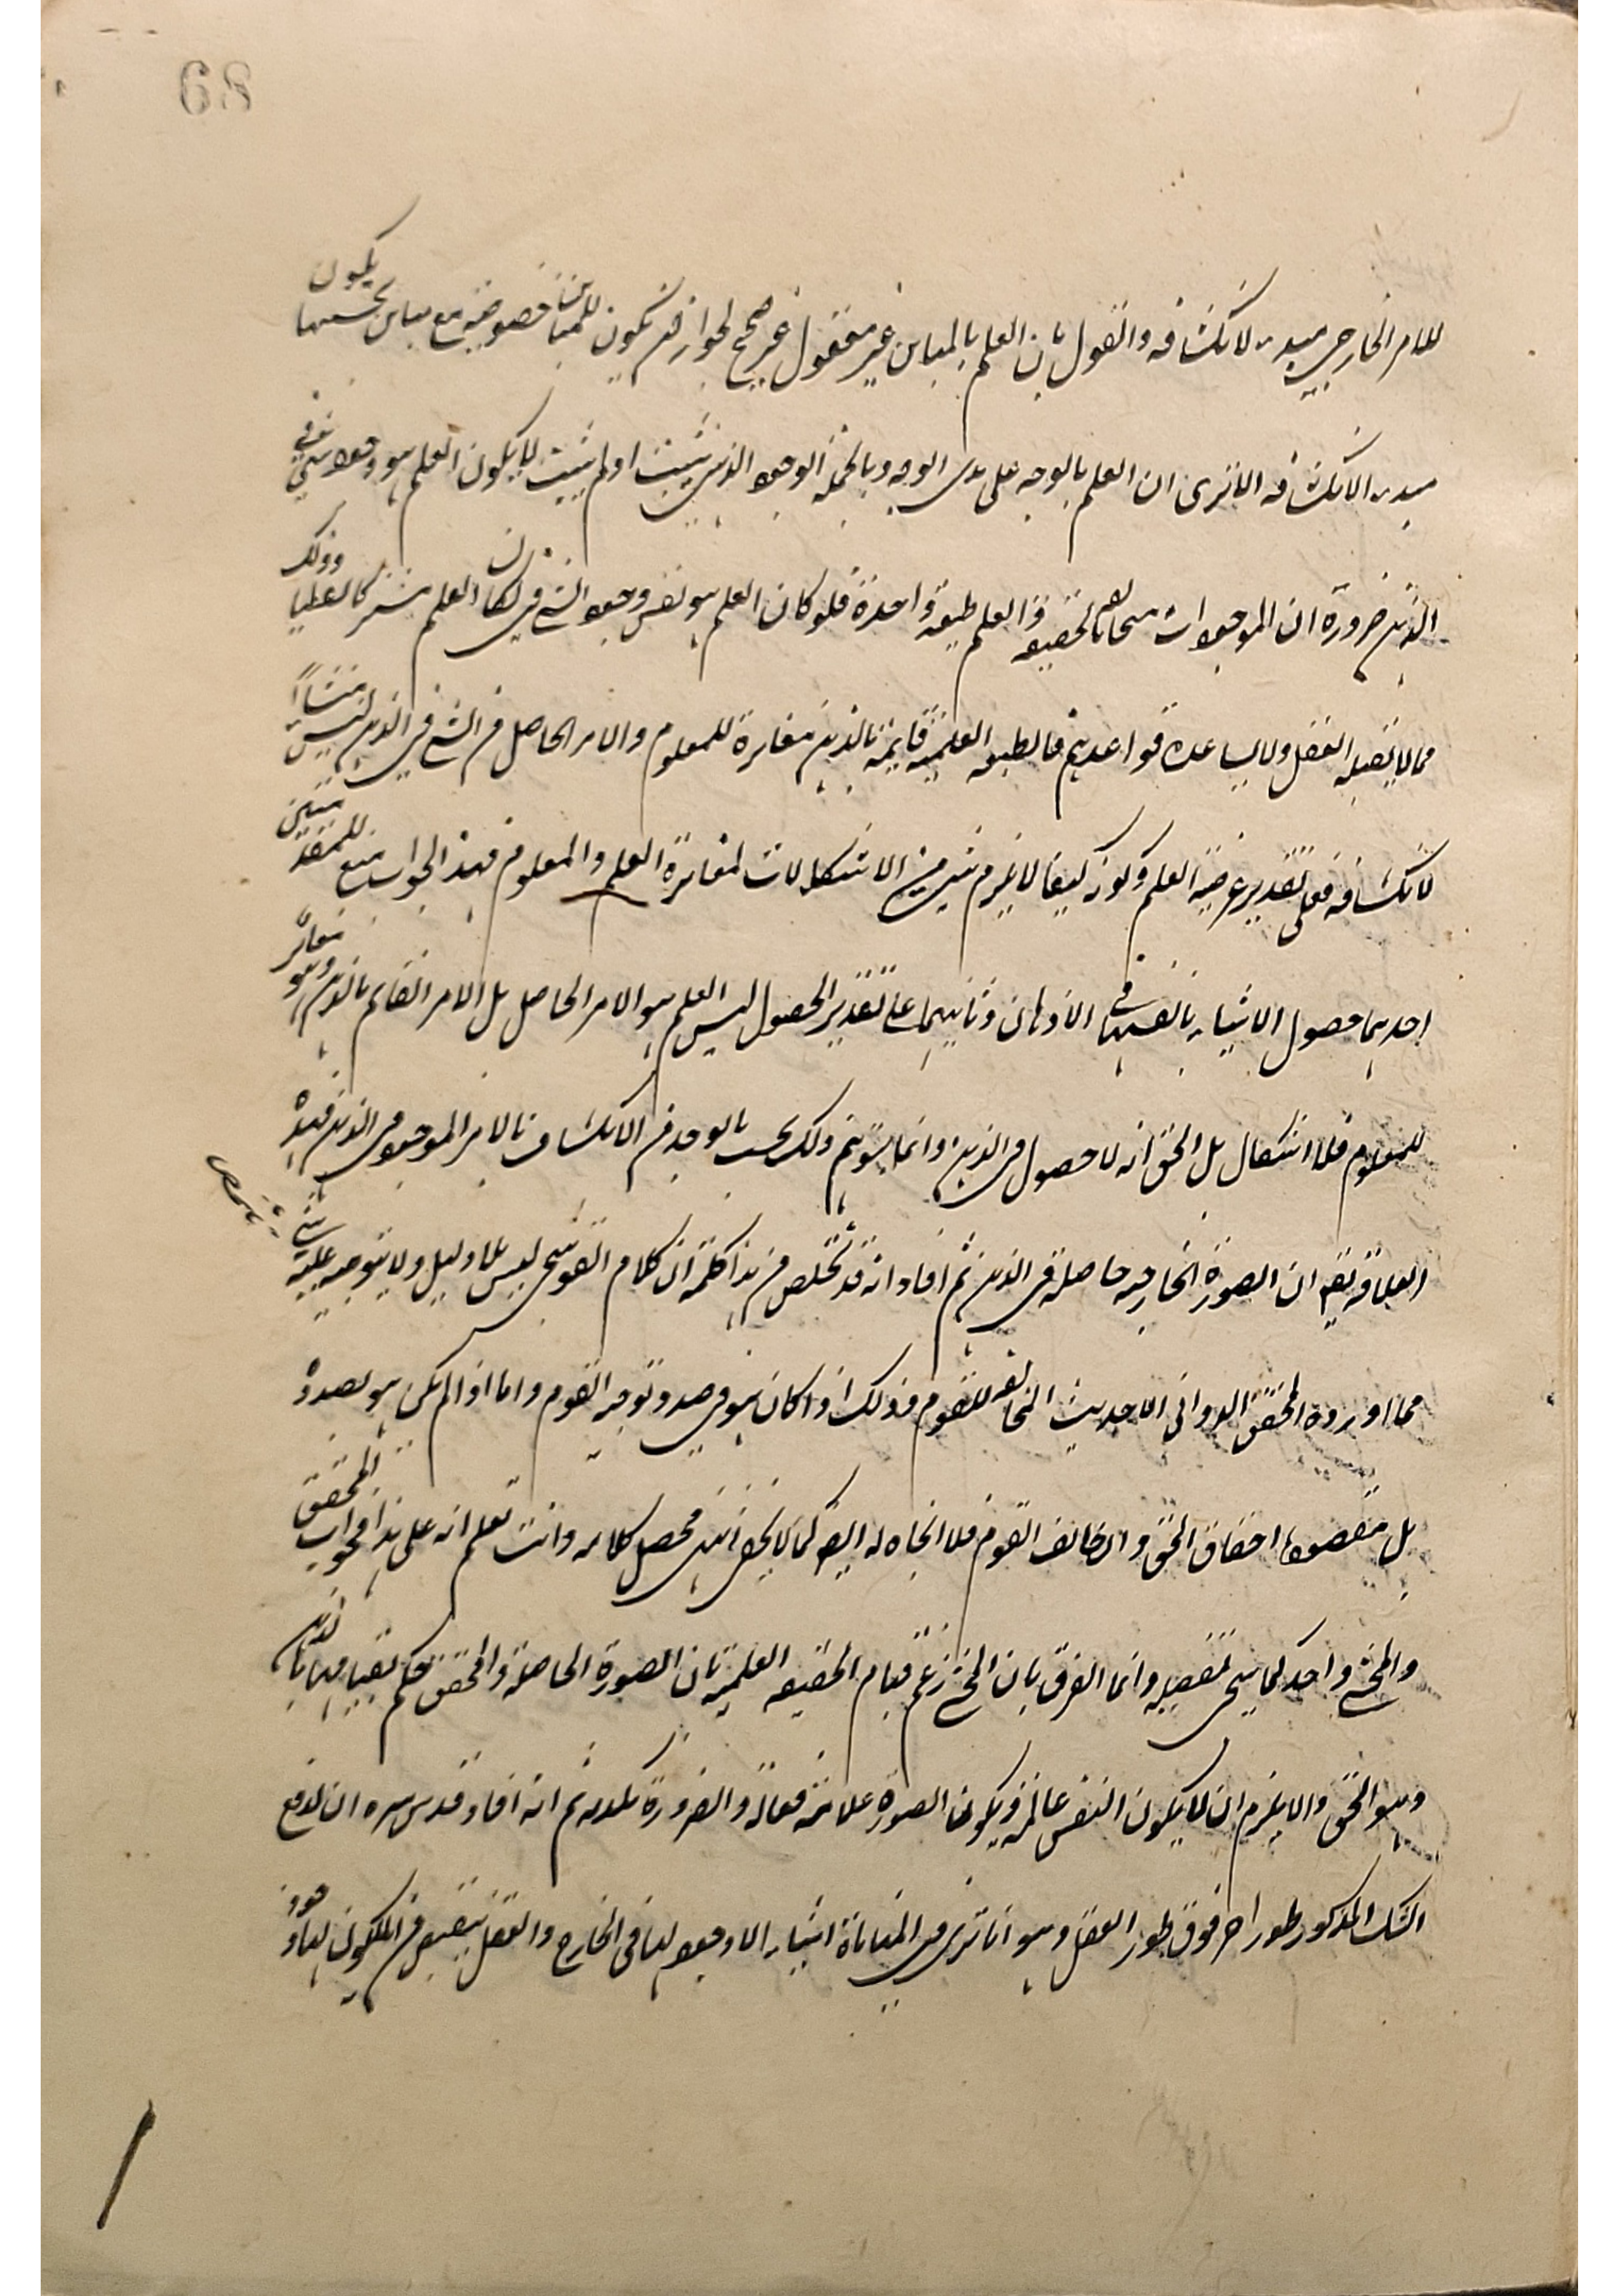 68
للامر الخارجي مبدء لانكشافه والقول بان العلم بالمباين غير معقول غير صحيح لجواز ان يكون للمباين خصوصية مع مباين بحسبها يكون
مبدء الانكشافه الا ترى ان العلم بالوجه على هدى الوجه وبالجملة الوجود الذهني ثبت او لم يثبت لا يكون العلم هو وجود الشيء في
الذهن ضرورة ان الموجودات متخالفة الحقيقة والعلم طبيعة واحدة فلو كان العلم هو نفس وجود الشيء في لكان العلم مشتركا لفظيا وذلك
مما لا يقبله العقل ولا يساعده قواعدهم فالطبيعة العلمية قايمة بالذهن مغايرة للمعلوم والامر الحاصل من الشيء في الذهن ليس منشأ
لانكشافه فعلى تقدير عرضية العلم وكونه كيفا لا يلزم شيء من الاشكالات لمغايرة العلم والمعلوم فهذا الجواب منع للمقدمتين
احديهما حصول الاشياء بانفسها في الاذهان وثانيهما على تقدير الحصول ليس العلم هو الامر الحاصل بل الامر القايم بالذهن وهو مغاير
للمعلوم فلا اشكال بل الحق انه لا حصول في الذهن وانما يتوهم ذلك بحسب بالوجد من الانكشاف بالامر الموجود في الذهن فبهذه
العلاقة يقع ان الصورة الخارجية حاصلة في الذهن ثم افاد انه قد تخلص من هذا كله ان كلام القوشجي ليس بلا دليل ولا يتوجه عليه شيء
مما اورده المحقق الدواني الا حديث المخالفة للقوم وذلك اذا كان هو في صدد توجيه القوم واما اذا لم يكن هو بصدده
بل مقصوده احقاق الحق وان خالف القوم فلا اتجاه له ايضا كما لا يخفى انتهى محصل كلامه وانت تعلم انه على هذا فجواب المحقق
والمحشي واحد كما سيجيء تفصيله وانما الفرق بان المحشي زعم قيام الحقيقة العلمية بان الصورة الحاصلة والمحقق حكم بقيامها بالذهن
وهو الحق والا يلزم ان لا يكون النفس عالمة ويكون الصورة علامة فعالة والضرورة تكذبه ثم انه افاد قدس سره ان لدفع
الشك المذكور طورا اخر فوق طور العقل وهو انا نرى في المنامات اشياء لا وجود لها في الخارج والعقل ينقبض من انكون لها وجود